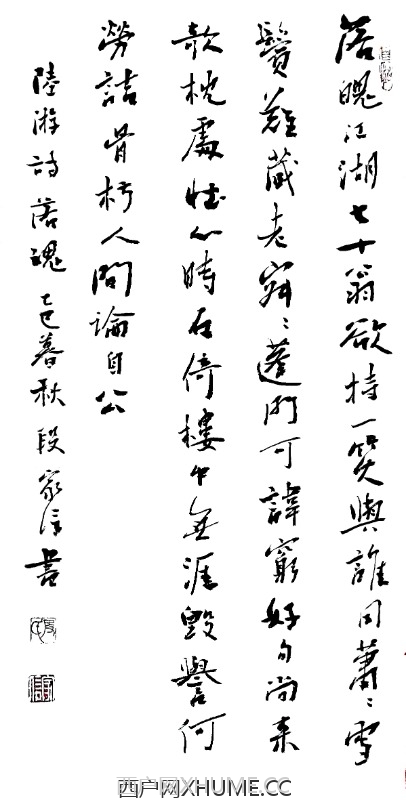 落魄江湖七十翁欲持一笑與誰同蕭〻雪
鬢難藏老寂〻蓬門可諱窮好句尚來
欹枕處壯心時在倚樓中無涯毀譽何
勞詰骨朽人間論自公
陸游詩落魄 巳暮秋段家書
西户网XHUME.CC